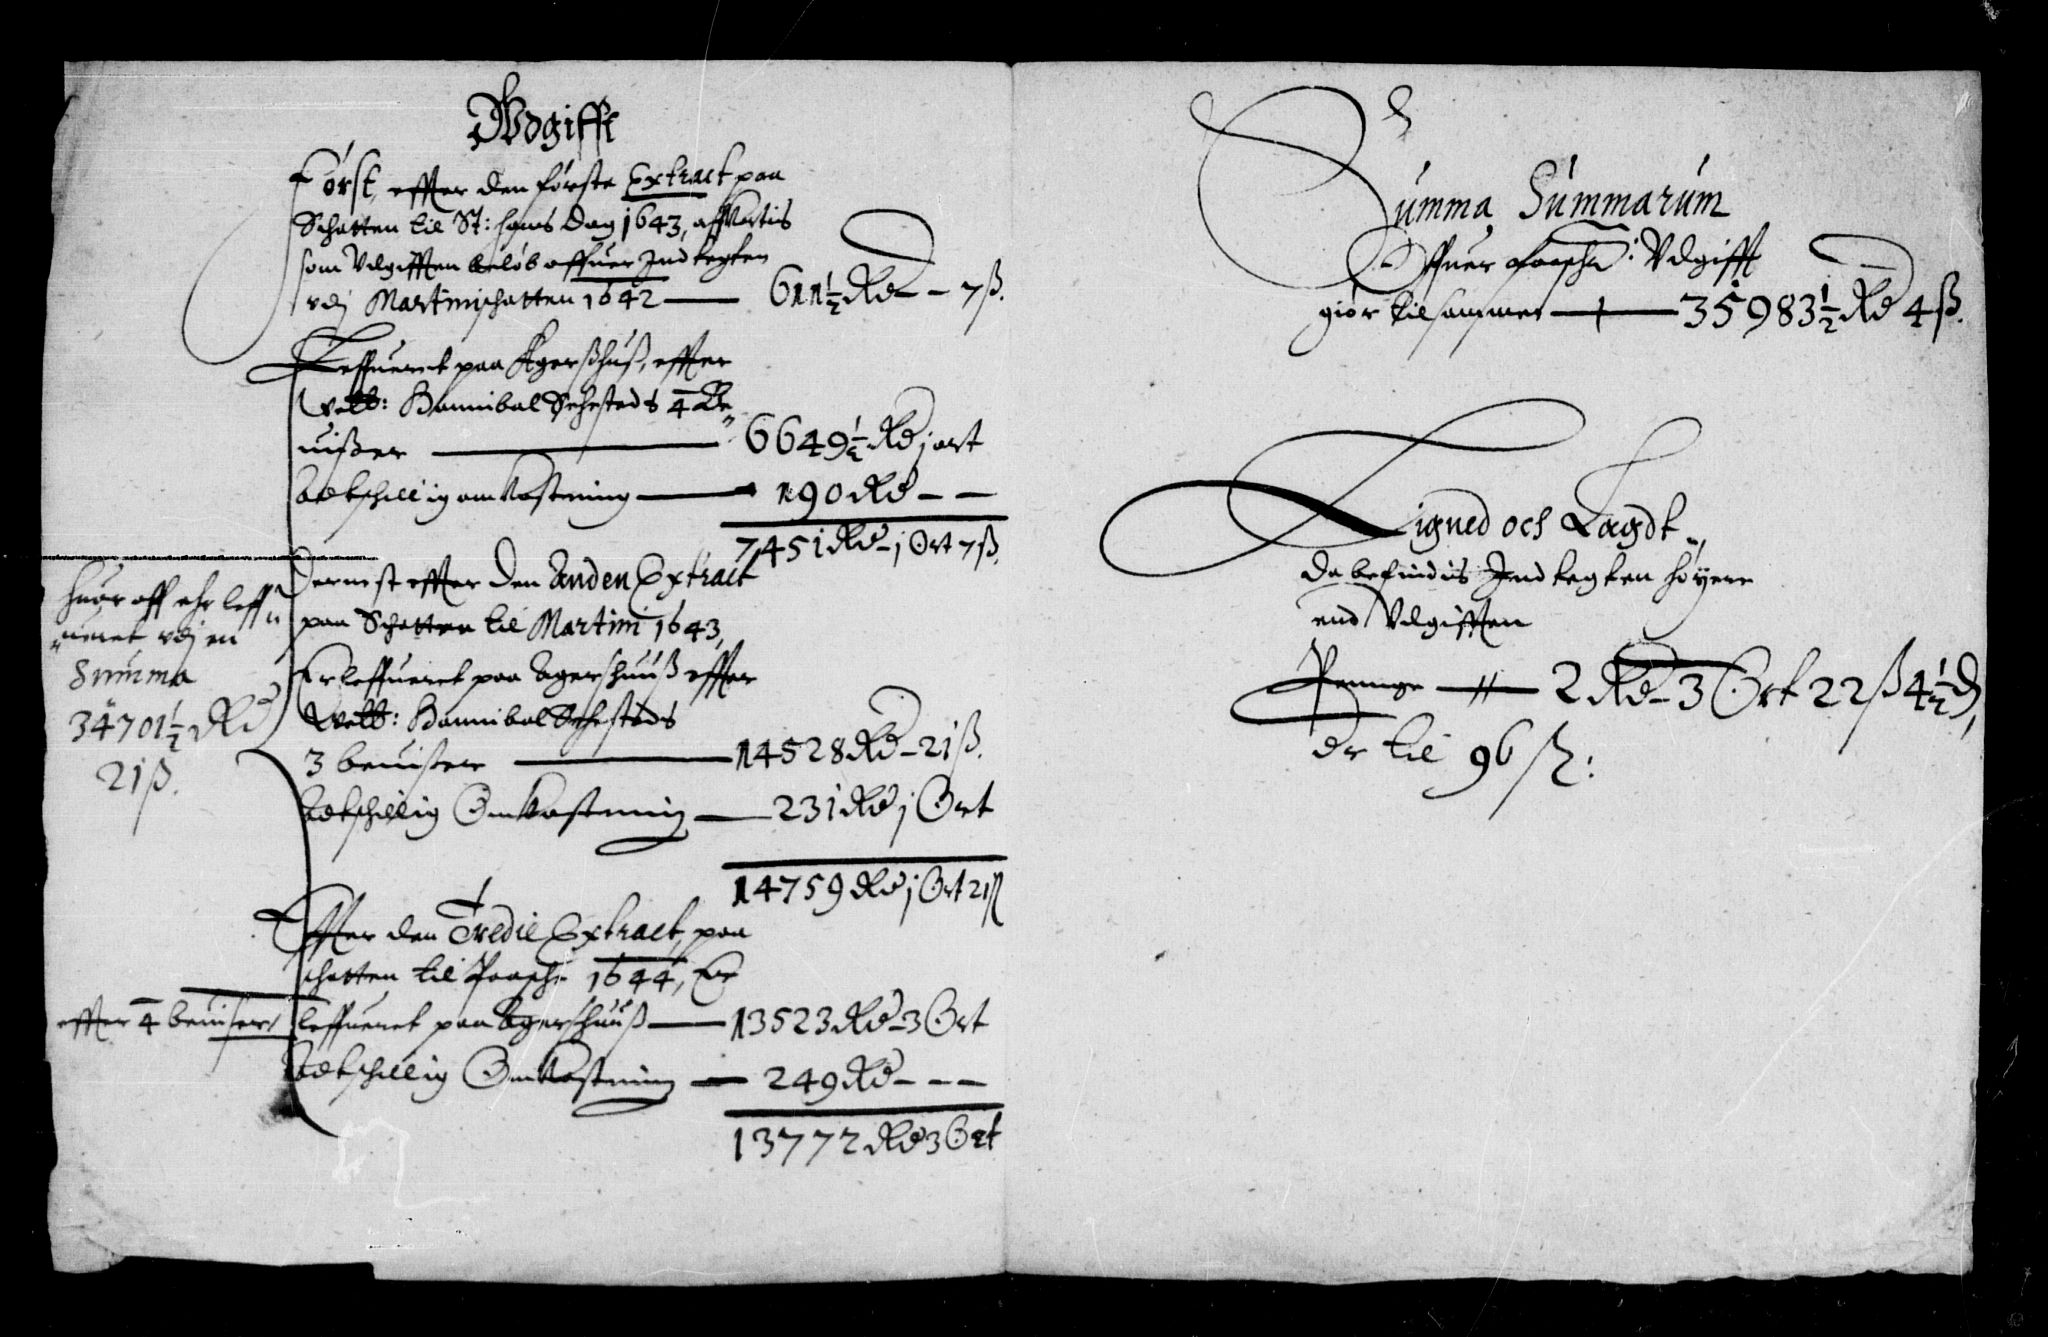 Wdgifft
Først, effter den første Extract paa
Schatten til St: Hans Dag 1643, affKortis
som Udgifften beløb offuer Indtegten
vdj Martinischatten 1642 — 611½ Rd – 7 ß.
Leffueret paa Agerßhuß, effter
Welb: Hannibal Sehesteds 4 Be„
uißer — 6649½ Rd j ort
Adtschillig omkostning — 190 Rd – –
7451 Rd – j Ort 7 ß.
Dernest effter den Anden Extract
paa Schatten til Martini 1643,
Er leffueret paa Agershuuß effter
Welb: Hannibal Sehesteds
3 beuißer — 14528 Rd – 21 ß.
Adtschillig Omkostning — 231 Rd j Ort
14759 Rd j Ort 21 ß
Effter den Tredie Extract, paa
schatten til Paasche 1644, Er
leffueret paa Agershuuß — 13523 Rd – 3 Ort
Adtschillig Omkostning — 249 Rd – – –
13772 Rd 3 Ort
Huor aff ehr leff„
„ueret vdj en
Summa
34701½ Rd
21 ß.
effter 4 beuiser
Summa Summarum
Offuer : Udgifft
giør tilsammen — 35983½ Rd 4 ß.
Ligned och Lagdt
da befindis Indtegten høyere
end Udgifften
Penninge — 2 Rd – 3 Ort 22 ß 4½ d,
Er til 96 ß: